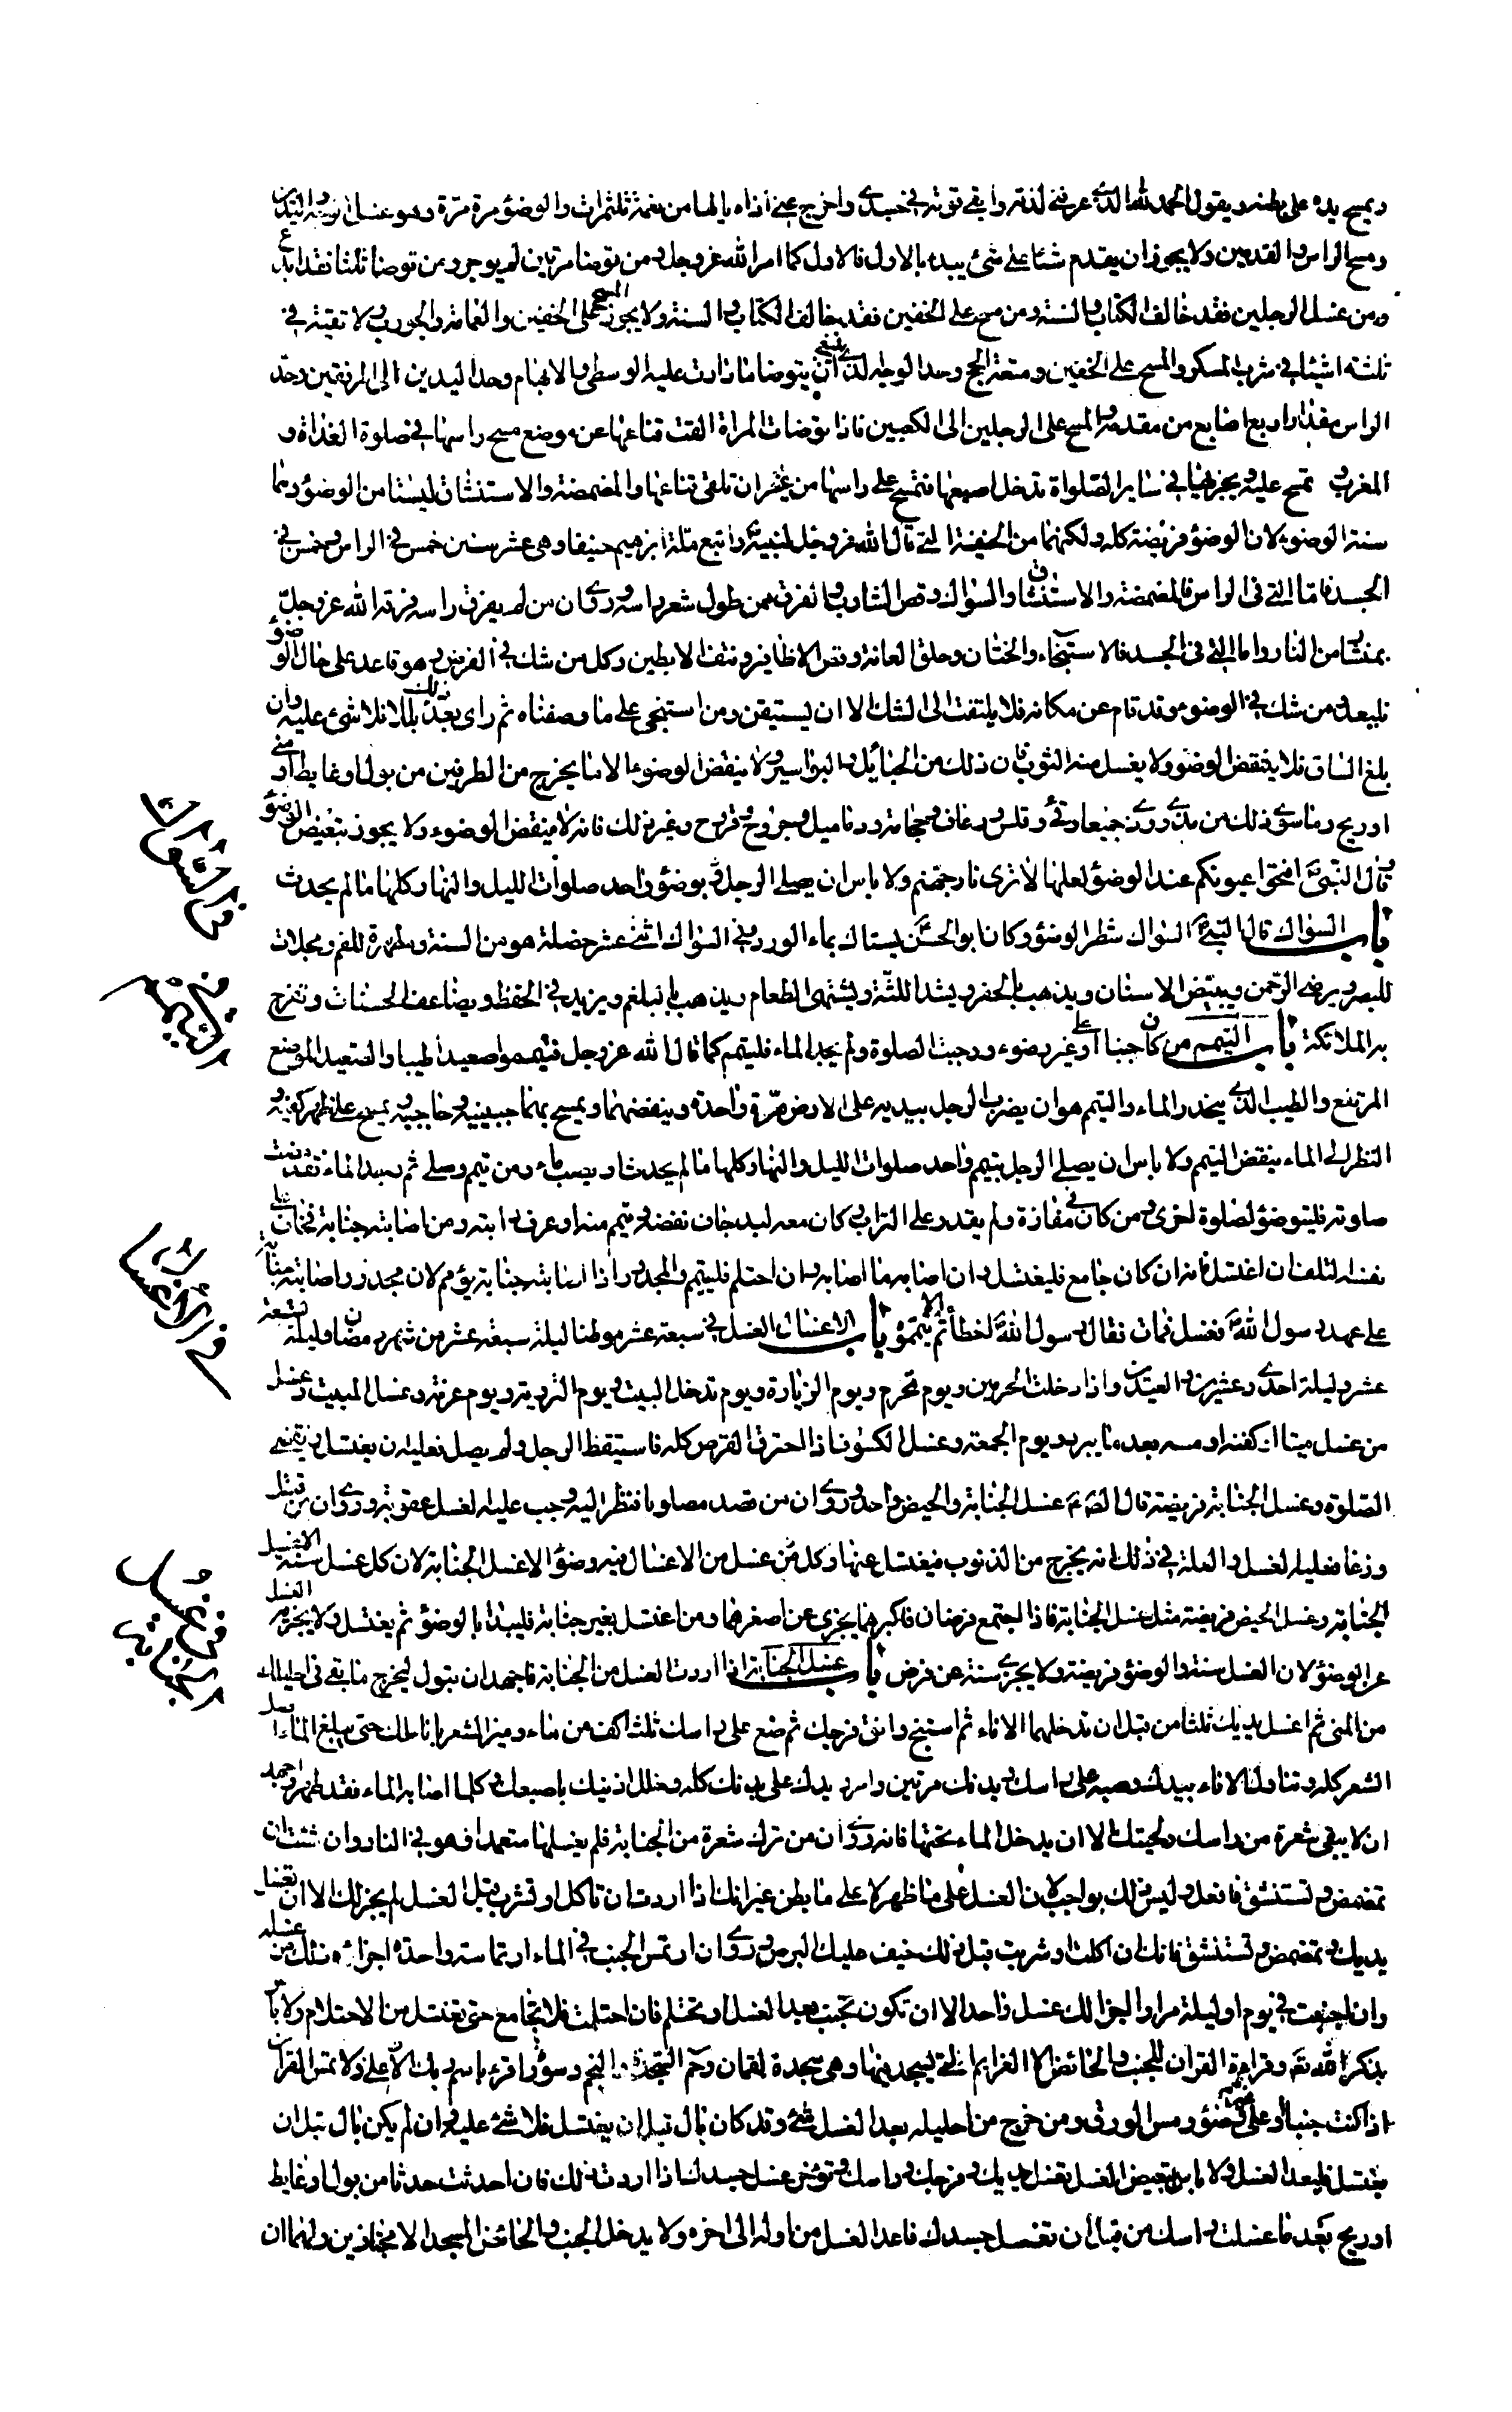 ويمسح يده على بطنه ويقول الحمد لله الذي عرفني لذته وابقى قوته في جسدي واخرج عني اذاه يا لها من نعمة ثلث مرات والوضوء مرة مرة وهو غسل الوجه واليدين
ومسح الراس والقدمين ولا يجوز ان يقدم شيئا على شئ يبدء بالاول فالاول كما امر الله عز وجل ومن توضا مرتين لم يوجر ومن توضا ثلثا فقد ابدع
ومن غسل الرجلين فقد خالف الكتاب والسنة ومن مسح على الخفين فقد خالف الكتاب والسنة ولا يجوز المسح على الخفين والعمامة والجورب ولا تقية في
ثلثة اشياء في شرب المسكر والمسح على الخفين ومتعة الحج وحد الوجه الذي ينبغي ان يتوضا ما دارت عليه الوسطى والابهام وحد اليدين الى المرفقين وحد
الراس مقدار اربع اصابع من مقدمه والمسح على الرجلين الى الكعبين فاذا توضات المراة القت قناعها عن موضع مسح راسها في صلوة الغداة و
المغرب وتمسح عليه ويجزيها في ساير الصلواة تدخل اصبعها فتمسح على راسها من غير ان تلقي قناعها والمضمضة والاستنشاق ليستا من الوضوء وهما
سنة الوضوء لان الوضوء فريضة كله ولكنهما من الحنيفية التي قال الله عز وجل لنبيه واتبع ملة ابرهيم حنيفا وهي عشر سنن خمس في الراس وخمس في
الجسد فاما التي في الراس فالمضمضة والاستنشاق والسواك وقص الشارب والفرق لمن طول شعر راسه وروي ان من لم يفرق راسه فرقه الله عز وجل
بمنشار من النار واما التي في الجسد فالاستنجاء والختان وحلق العانة وقص الاظافير ونتف الابطين وكل من شك في الفرض وهو قاعد على حال الوضوء
فليعد ومن شك في الوضوء وقد قام عن مكانه فلا يلتفت الى الشك الا ان يستيقن ومن استنجى على ما وصفناه ثم راى بعد ذلك بللا فلا شئ عليه وان
بلغ الساق فلا ينقض الوضوء ولا يغسل منه الثوب فان ذلك من الحبائل والبواسير ولا ينقض الوضوء الا ما يخرج من الطرفين من بول او غايط او مني
او ريح وما سوى ذلك من مذي وودي جميعا وقئ وقلس ورعاف وحجامة ودماميل وجروح وقروح وغير ذلك فانه لا ينقض الوضوء ولا يجوز تبعيض الوضوء
وقال النبي افتحوا عيونكم عند الوضوء لعلها لا ترى نار جهنم ولا باس ان يصلي الرجل بوضوء واحد صلوات الليل والنهار كلها ما لم يحدث
باب السواك قال النبي السواك شطر الوضوء وكان ابو الحسن يستاك بماء الورد وفي السواك اثنى عشر خصلة هو من السنة ومطهرة للفم ومجلات
للبصر ويرضي الرحمن ويبيض الاسنان ويذهب بالحفر ويشد اللثة ويشتهى الطعام ويذهب بالبلغم ويزيد في الحفظ ويضاعف الحسنات وتفرح
به الملائكة باب التيمم من كان جنبا او على غير وضوء ووجبت الصلوة ولم يجد الماء فليتيمم كما قال الله عز وجل فتيمموا صعيدا طيبا والصعيد الموضع
المرتفع والطيب الذي ينحدر الماء والتيمم هو ان يضرب الرجل بيديه على الارض مرة واحدة وينفضهما ويمسح بهما جبينيه وحاجبيه ويمسح على ظهر كفيه و
النظر الى الماء ينقض التيمم ولا باس ان يصلي الرجل بتيمم واحد صلوات الليل والنهار وكلها ما لم يحدث او يصب ماء ومن تيمم وصلى ثم وجد الماء فقد مضت
صلوته فليتوضؤ لصلوة اخرى ومن كان في مفازة ولم يقدر على التراب وكان معه لبد جاف نفضه وتيمم منه او عرف دابته ومن اصابته جنابة فخاف على
نفسه التلف ان اغتسل فانه ان كان جامع فليغتسل وان اصابه ما اصابه وان احتلم فليتيمم والمجدور اذا اصابته جنابة يؤمم لان مجدورا اصابته جنابة
على عهد رسول الله فغسل فمات فقال رسول الله اخطأتم الا يمموه باب الاغسال الغسل في سبعة عشر موطنا ليلة سبعة عشر من شهر رمضان وليلة تسعة
عشر وليلة احدى وعشرين والعيدين واذا دخلت الحرمين ويوم تحرم ويوم الزيارة ويوم تدخل البيت ويوم التروية ويوم عرفة وغسل الميت وغسل
من غسل ميتا او كفنه او مسه بعد ما يبرد ويوم الجمعة وغسل الكسوف اذا احترق القرص كله فاستيقظ الرجل ولم يصل فعليه ان يغتسل ويقضي
الصلوة وغسل الجنابة فريضة قال الص ع غسل الجنابة والحيض واحد وروي ان من قصد مصلوبا فنظر اليه وجب عليه الغسل عقوبة وروي ان من قتل
وزغا فعليه الغسل والعلة في ذلك انه يخرج من الذنوب فيغتسل عنها وكل غسل من الاغسال فيه وضوء الا غسل الجنابة لان كل غسل سنة الا غسل
الجنابة وغسل الحيض فريضة مثل غسل الجنابة فاذا اجتمع فرضان فاكبرهما يجزي عن اصغرهما ومن اغتسل بغير جنابة فليبدا بالوضوء ثم يغتسل ولا يجزيه الغسل
عن الوضوء لان الغسل سنة والوضوء فريضة ولا يجزي سنة عن فرض باب غسل الجنابة اذا اردت الغسل من الجنابة فاجهد ان تبول ليخرج ما بقي في احليلك
من المني ثم اغسل يديك ثلثا من قبل ان تدخلهما الاناء ثم استنج وانق فرجك ثم ضع على راسك ثلث اكف من ماء وميز الشعر باناملك حتى يبلغ الماء اصل
الشعر كله وتناول الاناء بيدك وصبه على راسك وبدنك مرتين وامرر يدك على بدنك كله وخلل اذنيك باصبعك وكلما اصابه الماء فقد طهر واجهد
ان لا يبقى شعرة من راسك ولحيتك الا ان يدخل الماء تحتها فانه روي ان من ترك شعرة من الجنابة فلم يغسلها متعمدا فهو في النار وان شئت ان
تمضمض وتستنشق فافعل وليس ذلك بواجب لان الغسل على ما ظهر لا على ما بطن غير انك اذا اردت ان تاكل او تشرب قبل الغسل لم يجز لك الا ان تغسل
يديك وتمضمض وتستنشق فانك ان اكلت او شربت قبل ذلك خيف عليك البرص وروي ان ارتمس الجنب في الماء ارتماسة واحدة اجزاه ذلك من غسله
وان اجنبت في يوم او ليلة مرارا اجزالك غسل واحد الا ان تكون تجنب بعد الغسل او تحتلم فان احتلمت فلا تجامع حتى تغتسل من الاحتلام ولا باس
بذكر الله تع وقراءة القران للجنب والحائض الا العزايم التي يسجد فيها وهي سجدة لقمان وحم السجدة والنجم وسورة اقرء باسم ربك الاعلى ولا تمس القران
اذا كنت جنبا او على غير وضوء ومس الورق ومن خرج من احليله بعد الغسل شئ وقد كان بال قبل ان يغتسل فلا شئ عليه وان لم يكن بال قبل ان
يغتسل فليعد الغسل ولا باس بتبعيض الغسل تغسل يديك وفرجك وراسك وتؤخر غسل جسدك اذا اردت ذلك فان احدثت حدثا من بول او غايط
او ريح بعد ما غسلت راسك من قبل ان تغسل جسدك فاعد الغسل من اوله الى اخره ولا يدخل الجنب والحائض المسجد الا مجتازين ولهما ان
في السواك
في التيمم
في الاغسال
في غسل
الجنابة